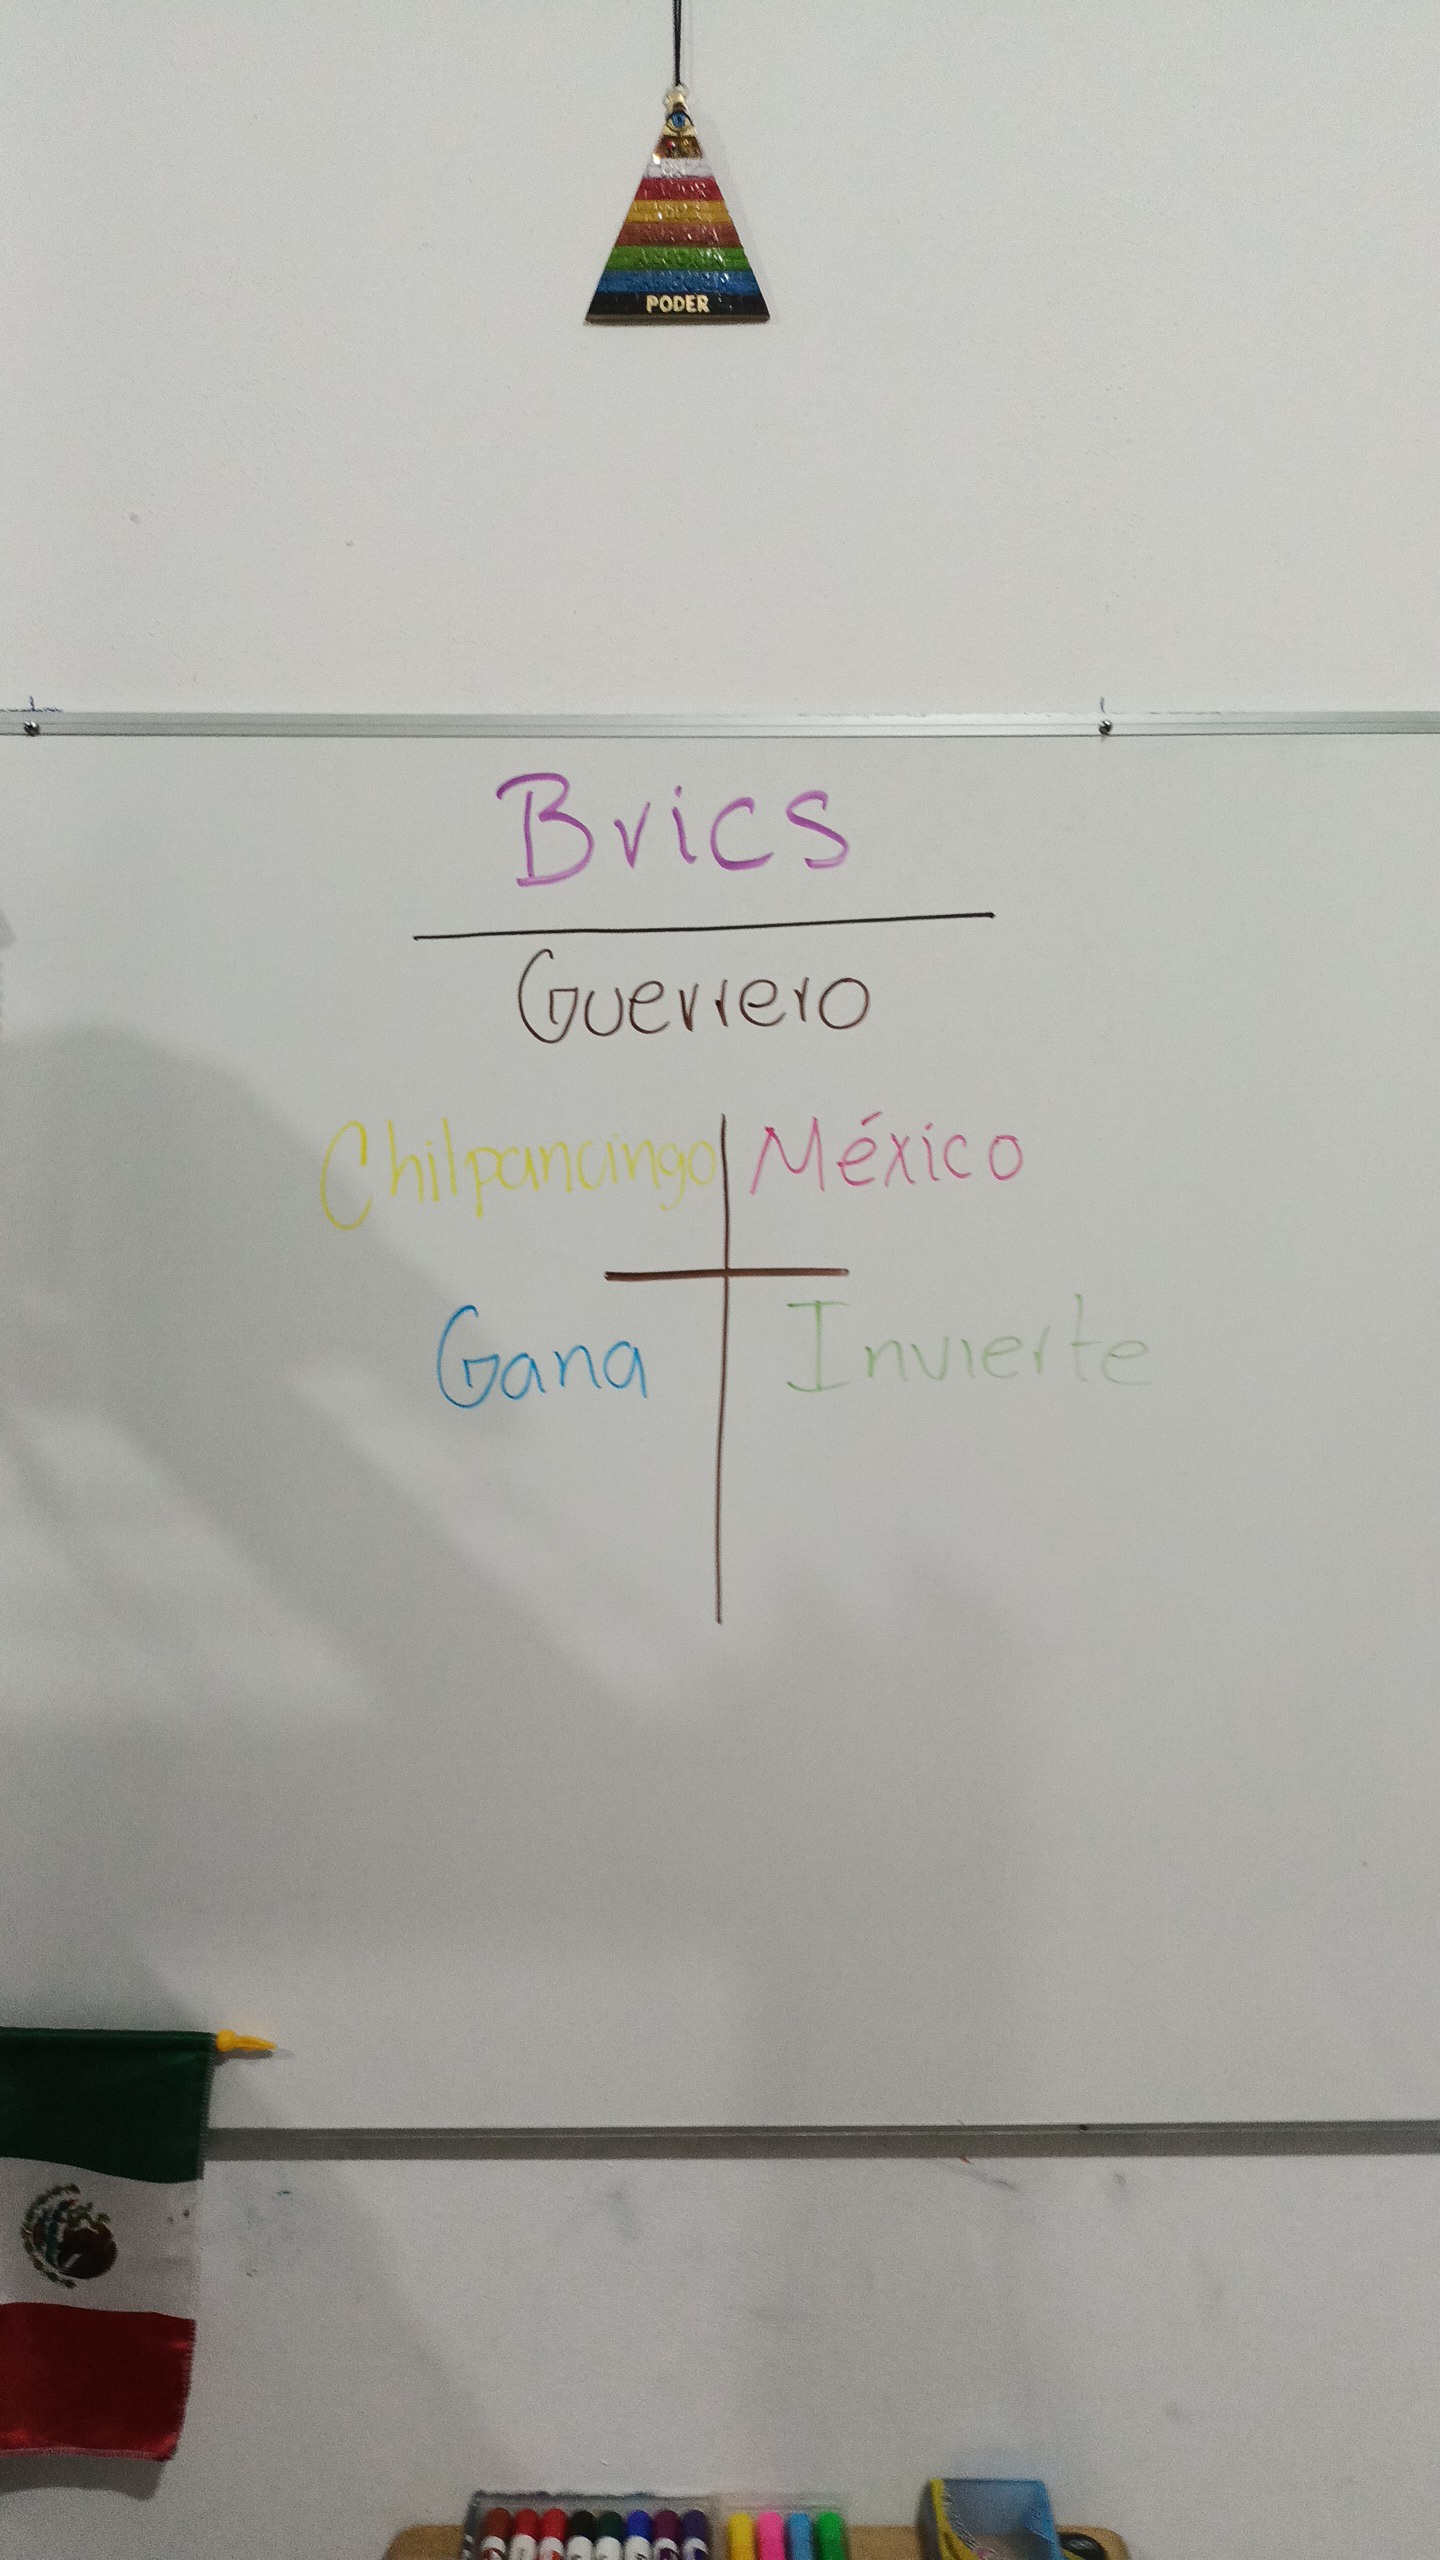 PODER
Brics
Guerrero
Chilpancingo México
Gana Invierte